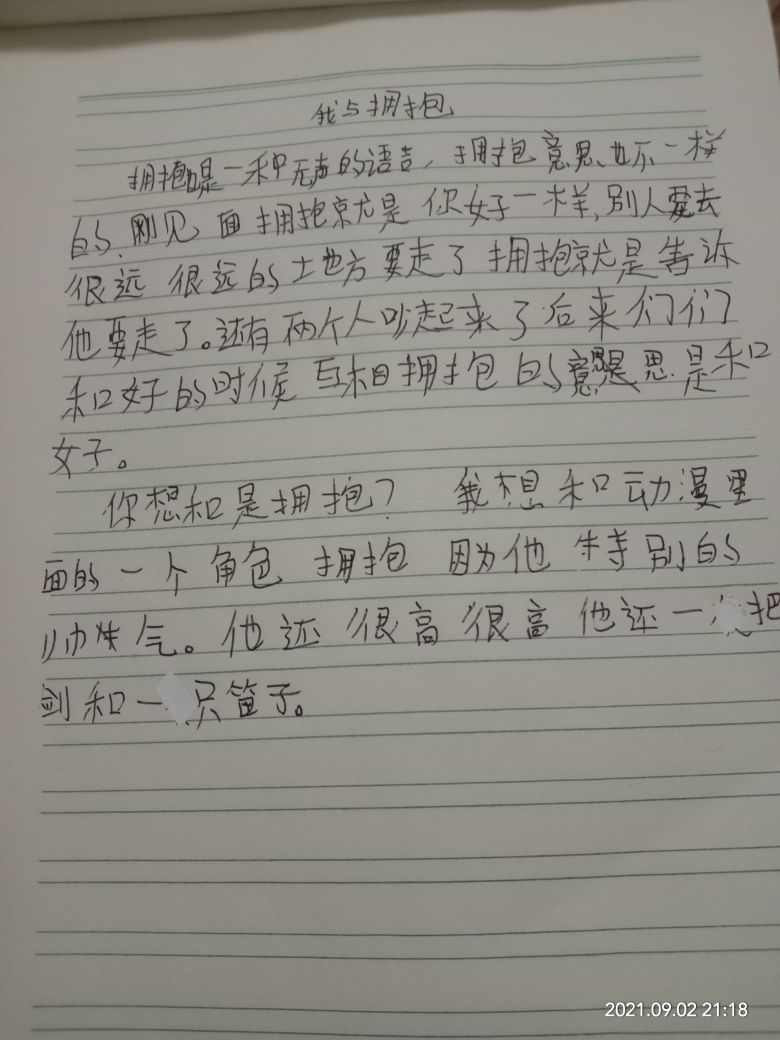 我与拥抱
拥抱是一种无声的语言，拥抱意思也不一样
的、刚见面拥抱就是你好一样,别人要去
很远很远的土地方要走了拥抱就是告诉
他要走了。还有两个人吵起来了后来们们
和好的时候互相拥抱的意思是和
好。
你想和是拥抱？我想和动漫里
面的一个角色拥抱因为他特别的
帅气。他还很高很高他还一把
剑和一只笛子。
2021.09.02 21:18